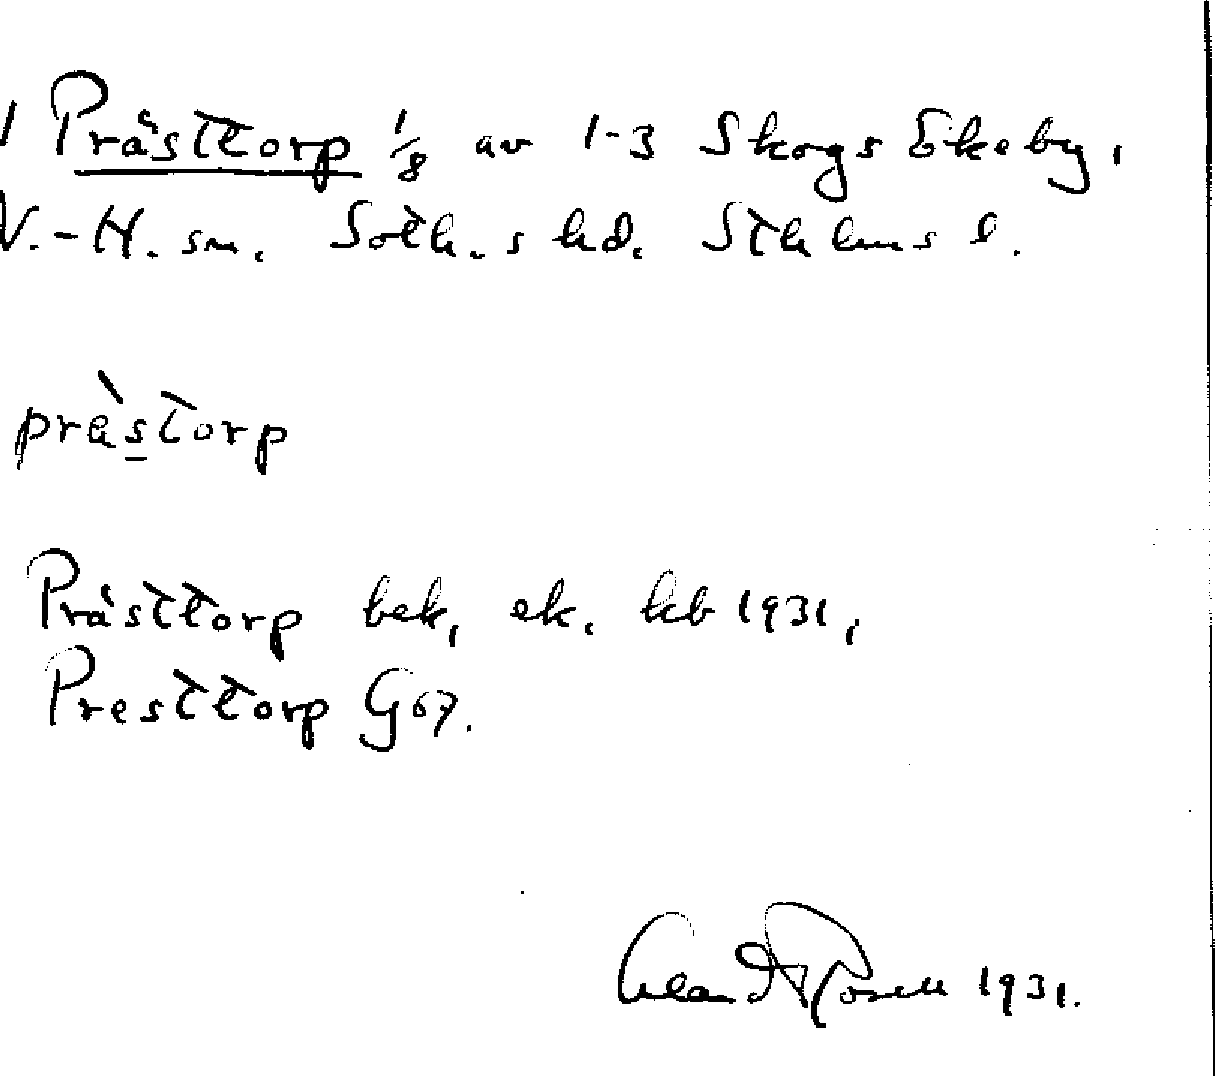 1 Prästtorp 1/8 av 1-3 Skogs Ekeby,
V.-H. sn. Soth.s hd. Sthlms l.
prästorp
Prästtorp bek, ek. kb 1931,
Presttorp G 67.
Erland Rosell 1931.